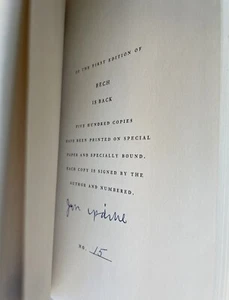 OF THE FIRST EDITION OF
BECH
IS BACK
FIVE HUNDRED COPIES
HAVE BEEN PRINTED ON SPECIAL
PAPER AND SPECIALLY BOUND.
EACH COPY IS SIGNED BY THE
AUTHOR AND NUMBERED.
John Updike
NO. 15